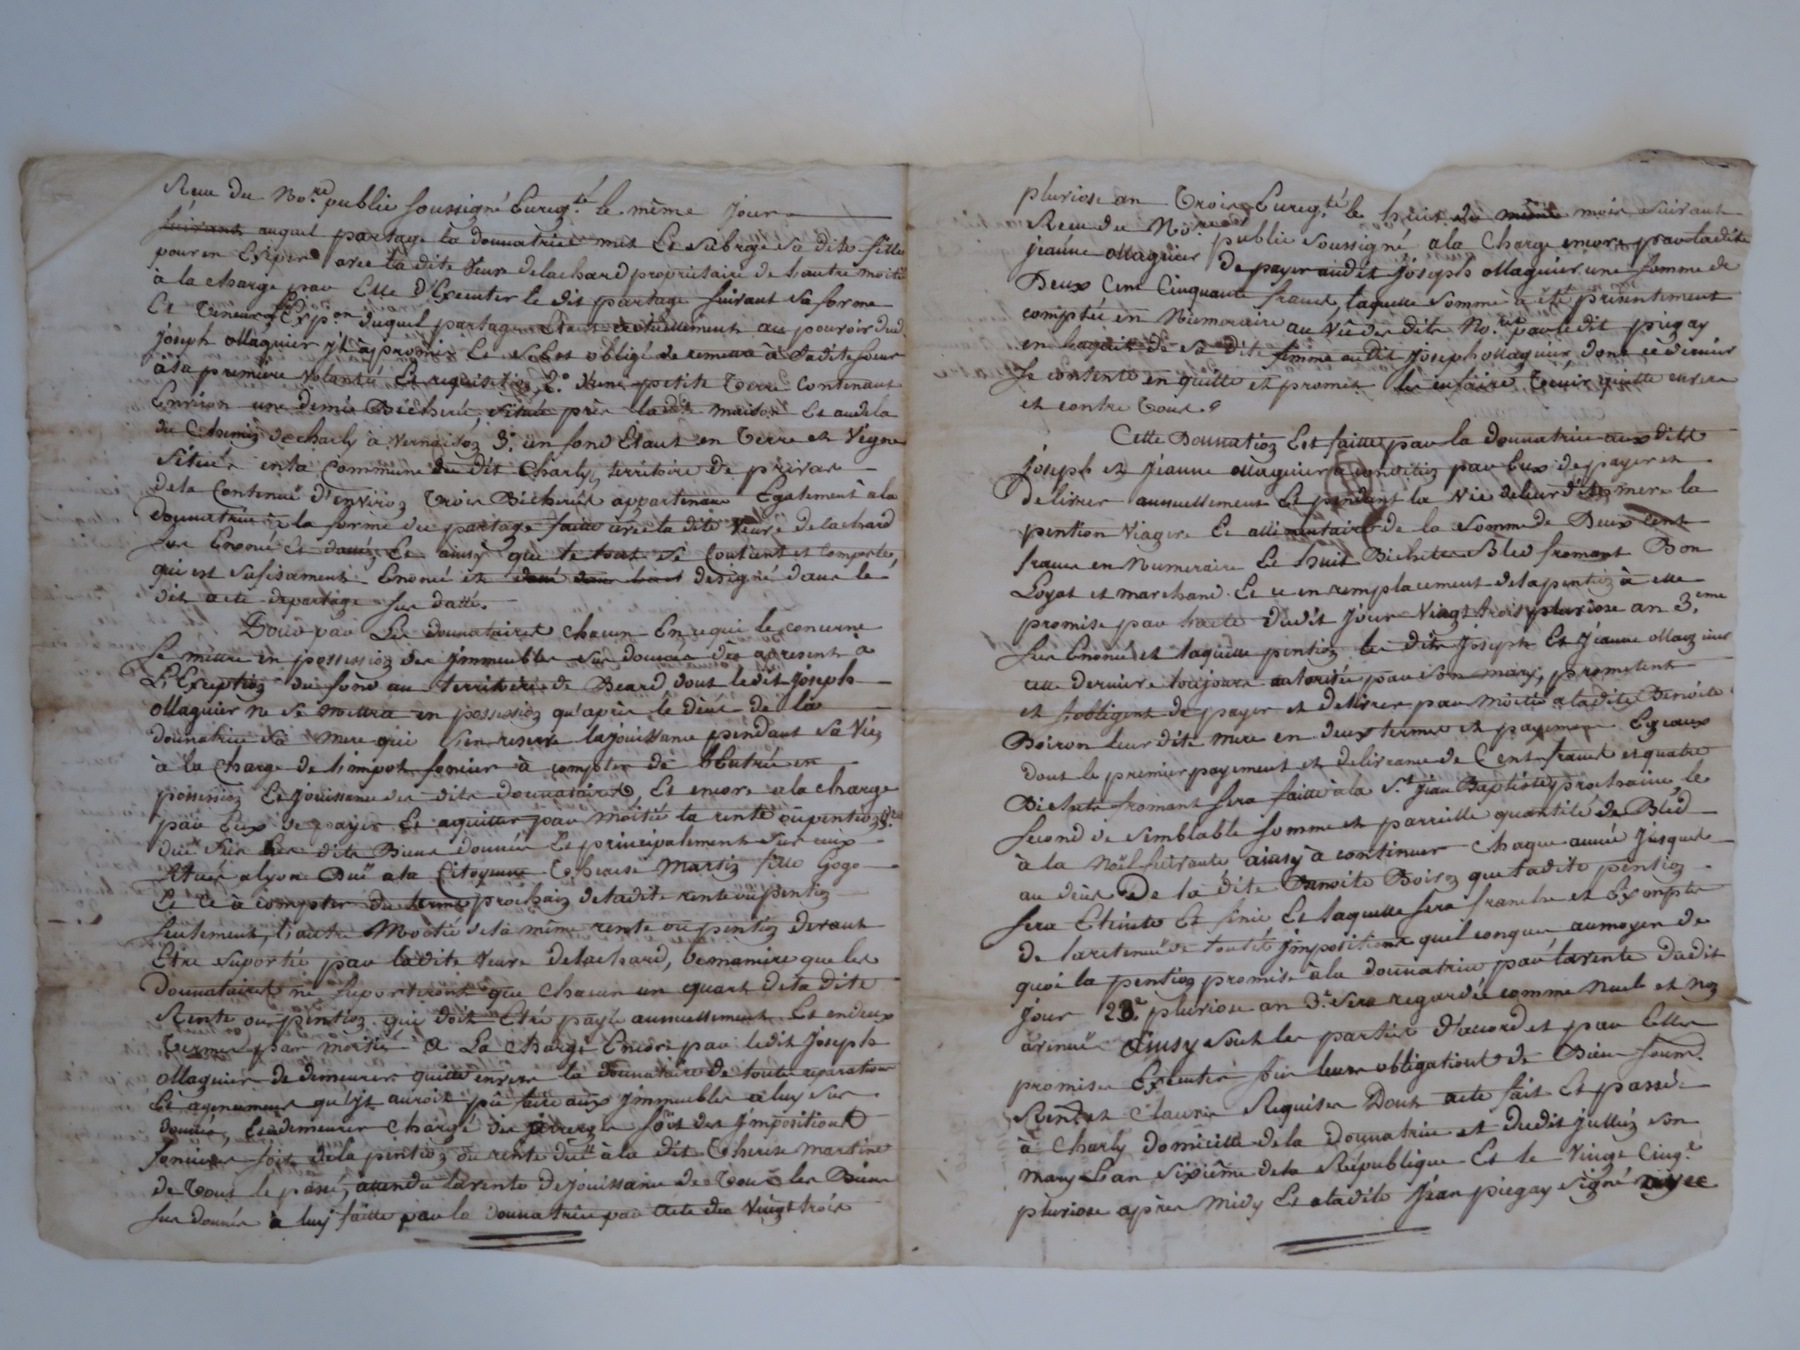 Reçu du No.re public soussigné Enreg.té le même jour
suivant auquel partage la donnatrice met Et Subroge Sa dite fille
pour en Exiper avec la dite Veuve delachard propriétaire de l'autre moitié
à la charge par Elle d'Executer le dit partage suivant sa forme
Et teneur Exp.on duquel partage Etant actuellement au pouvoir dud.
Joseph ollagnier il à promis Et s'est obligé de remettre à Sadite Soeur
à la première volonté Et requisition, 2.o d'une petite terre Contenant
Environ une demie Bicherée située près lad.te maison Et audela
du Chemin de charly à vernaison 3.o un fond Etant en terre et Vigne
Située en la Commune du dit Charly, territoire de privas
de la Contenue d'environ trois Bicherées appartenant Egalement à la
donnatrice à la forme du partage fait avec la dite Veuve delachard
sus Enoncé Et datté, Et ainsy que le tout se Contient et Comporte,
qui est sufisament Enoncé et designé dans le
dit acte de partage sus datté.
Pour par Les donnataires chacun En ce qui le concerne
Se mettre en possession des Immeubles Sus donnés dès apresent à
L'Exeption du fond au territoire de Beard dont ledit Joseph
ollagnier ne se mettra en possession qu'après le décès de la
donnatrice Sa mere qui s'en reserve la jouissance pendant Sa Vie
à la Charge de l'impot foncier à compter de l'entrée en
possession Et Jouissance des dits donnataires, Et encore a la charge
par Eux de payer Et aquitter par moitié la rente ou pention
due Sur les dits Biens donnés Et principalement Sur ceux
situés a lyon Due a la Citoyenne Therese Martin fille Gogo
Et ce à compter du terme prochain de ladite rente ou pention
seulement, l'autre Moitié de la même rente ou pention devant
Etre suportée par ladite Veuve delachard, de maniere que les
Donnataires ne suporteront que chacun un quart de ladite
Rente ou pention qui doit Etre payé annuellement Et en deux
termes par moitié à La charge Encore par ledit Joseph
ollagnier de demeurer quitte envers la donnataire de toute reparation
Et agencement qu'il auroit pû faire aux Immeubles a luy sus
donnés, Et demeurer chargé des arrerages soit des Impositions
foncieres soit de la pention ou rente due à la dite Therese martine
de tout le passé, attendu la vente de jouissance de tous les Biens
sus donnés à luy faitte par la donnatrice par acte du Vingt trois
pluviose an Trois Enreg.té le huit du même mois suivant
Reçu du No.re public soussigné à la Charge encore par ladite
jeanne ollagnier de payer audit Joseph ollagnier une somme de
Deux Cent Cinquante francs, laquelle Somme à été présentement
comptée en Numeraire au Vû du dit No.re par le dit piegay
en l'aquit de Sa dite femme au dit Joseph ollagnier, dont ce dernier
se contente en quitte et promet les en faire tenir quitte envers
et contre tous.
Cette Donnation Est faitte par la donnatrice aux dits
Joseph et Jeanne ollagnier à condition par Eux de payer et
delivrer annuellement Et pendant la Vie de leur dite mere la
pention Viagere Et allimentaire de la Somme de Deux Cent
francs en Numeraire Et huit Bichets Bled froment Bon
Loyal et marchand. Et ce en remplacement de la pention à elle
promise par l'acte dudit Jour Vingt trois pluviose an 3.eme
Sus Enoncé et laquelle pention les dits Joseph Et Jeanne ollagnier
cette derniere toujours autorisée par son mary, promettent
et s'obligent de payer et delivrer par moitié a ladite Benoite
Boiron leur dite mere en deux termes et payemens Egeaux
Dont le premier payement et delivrance de Cent francs et quatre
Bichets froment Sera faitte à la S.t Jean Baptiste prochaine, le
second de semblable somme et pareille quantité de Bled
à la Noël suivante ainsy à continuer Chaque année Jusques
au décès De la dite Benoite Boiron que ladite pention
sera Eteinte Et finie Et laquelle sera franche et Exempte
de la retenue de toutes Impositions quelconques au moyen de
quoi la pention promise à la donnatrice par la vente dudit
Jour 23.e pluviose an 3.e Sera regardée comme nulle et non
avenue Ainsy sont les parties d'accord et par Elles
promis Executer sous leurs obligations de Biens soum.
Renon.et Clauses Requises Dont acte fait Et passé
à Charly domicille de la Donnatrice et dudit Jullien son
mary L'an Sixième de la République Et le Vingt Cinq.e
pluviose après Midy Et a ladite Jean piegay signé avec